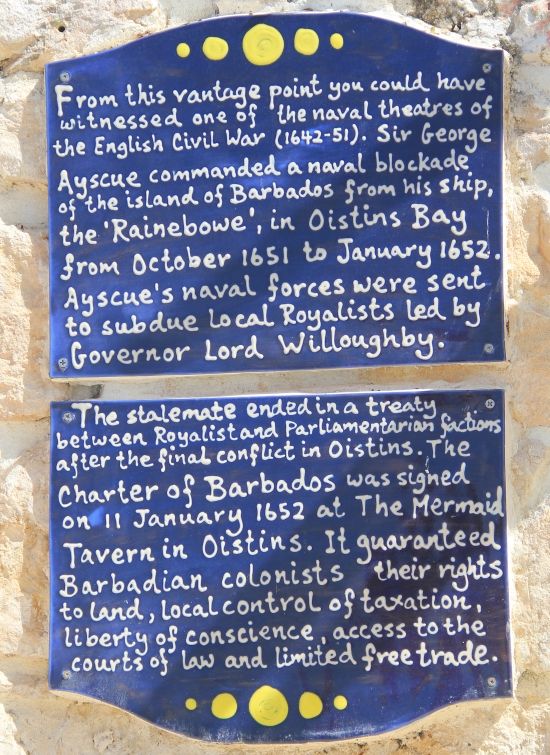 From this vantage point you could have
witnessed one of the naval theatres of
the English Civil War (1642-51). Sir George
Ayscue commanded a naval blockade
of the island of Barbados from his ship,
the 'Rainebowe', in Oistins Bay
from October 1651 to January 1652.
Ayscue's naval forces were sent
to subdue local Royalists led by
Governor Lord Willoughby.
The stalemate ended in a treaty
between Royalist and Parliamentarian factions
after the final conflict in Oistins. The
Charter of Barbados was signed
on 11 January 1652 at The Mermaid
Tavern in Oistins. It guaranteed
Barbadian colonists their rights
to land, local control of taxation,
liberty of conscience, access to the
courts of law and limited free trade.